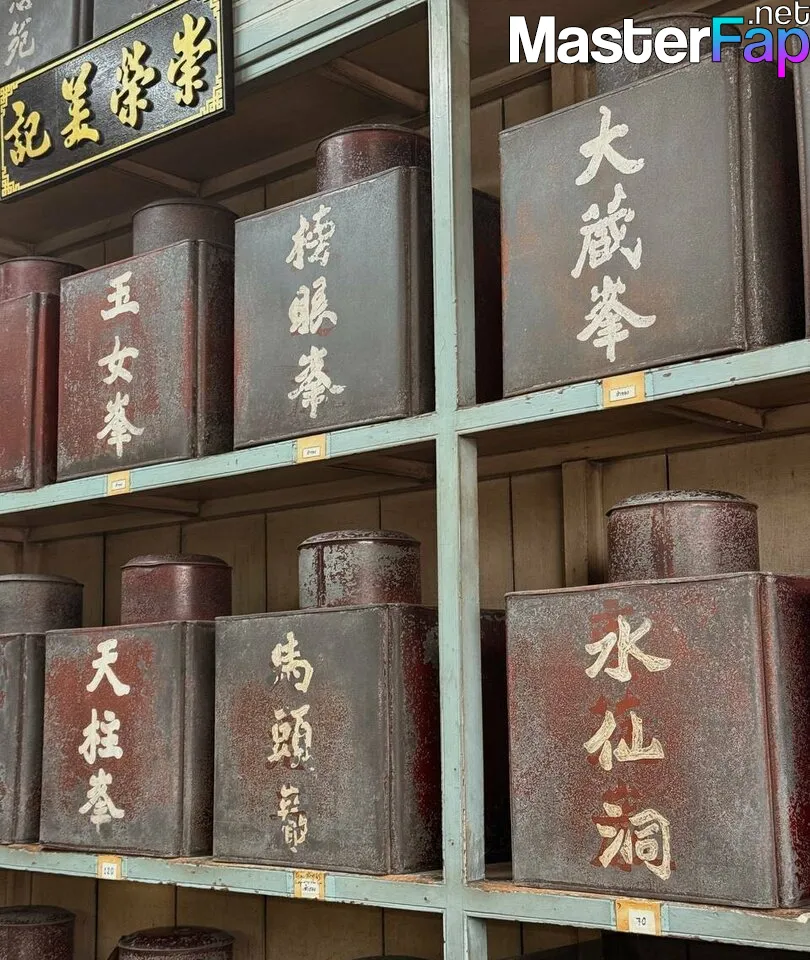 MasterFap.net
崇榮美記
大藏峯
玉女峯
天柱峯
馬頭巖
水仙洞
70